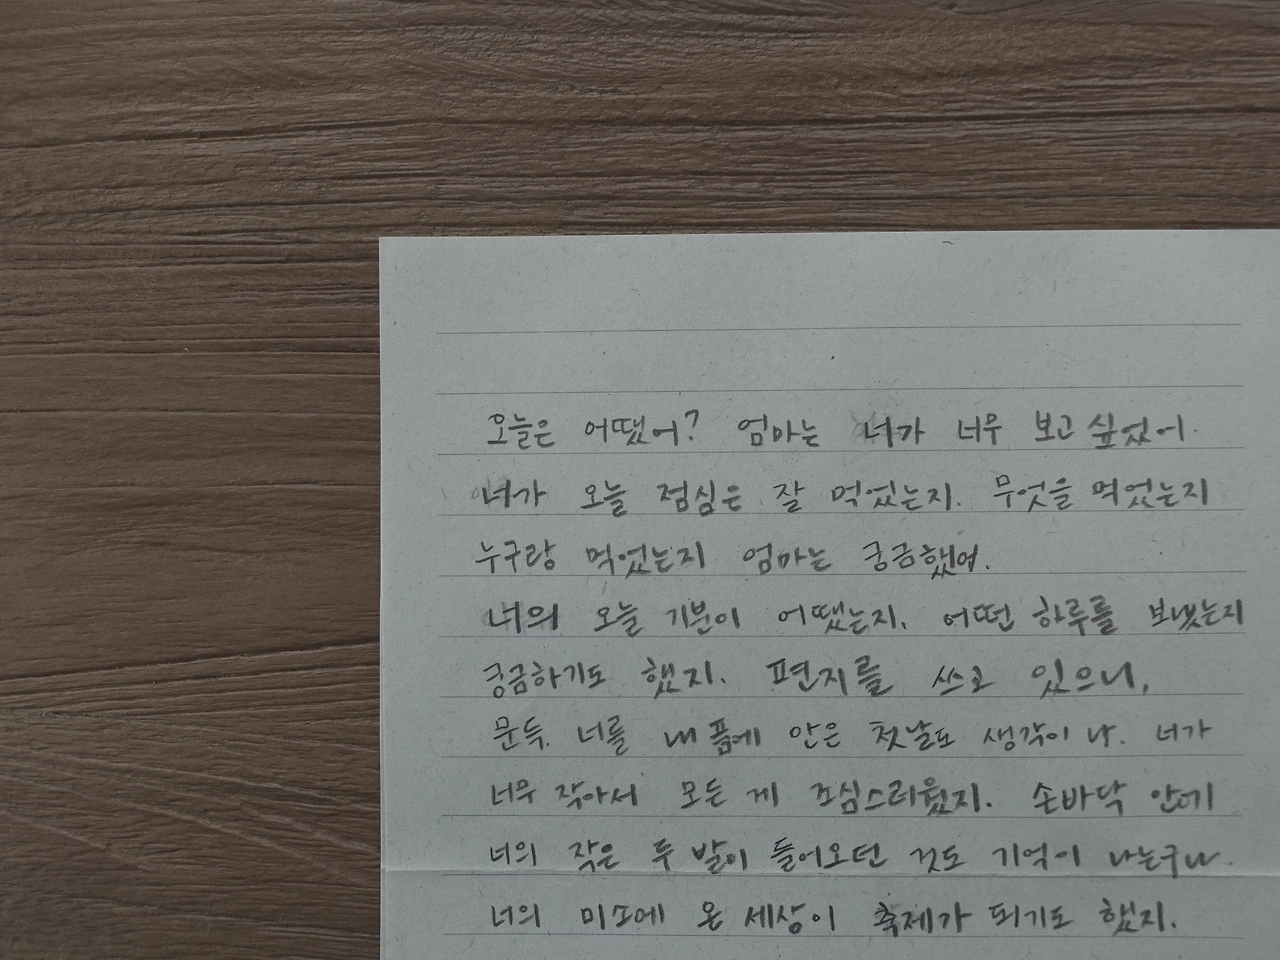 오늘은 어땠어? 엄마는 너가 너무 보고 싶었어.
너가 오늘 점심은 잘 먹었는지. 무엇을 먹었는지
누구랑 먹었는지 엄마는 궁금했어.
너의 오늘 기분이 어땠는지. 어떤 하루를 보냈는지
궁금하기도 했지. 편지를 쓰고 있으니,
문득. 너를 내 품에 안은 첫날도 생각이 나. 너가
너무 작아서 모든 게 조심스러웠지. 손바닥 안에
너의 작은 두 발이 들어오던 것도 기억이 나는구나.
너의 미소에 온 세상이 축제가 되기도 했지.